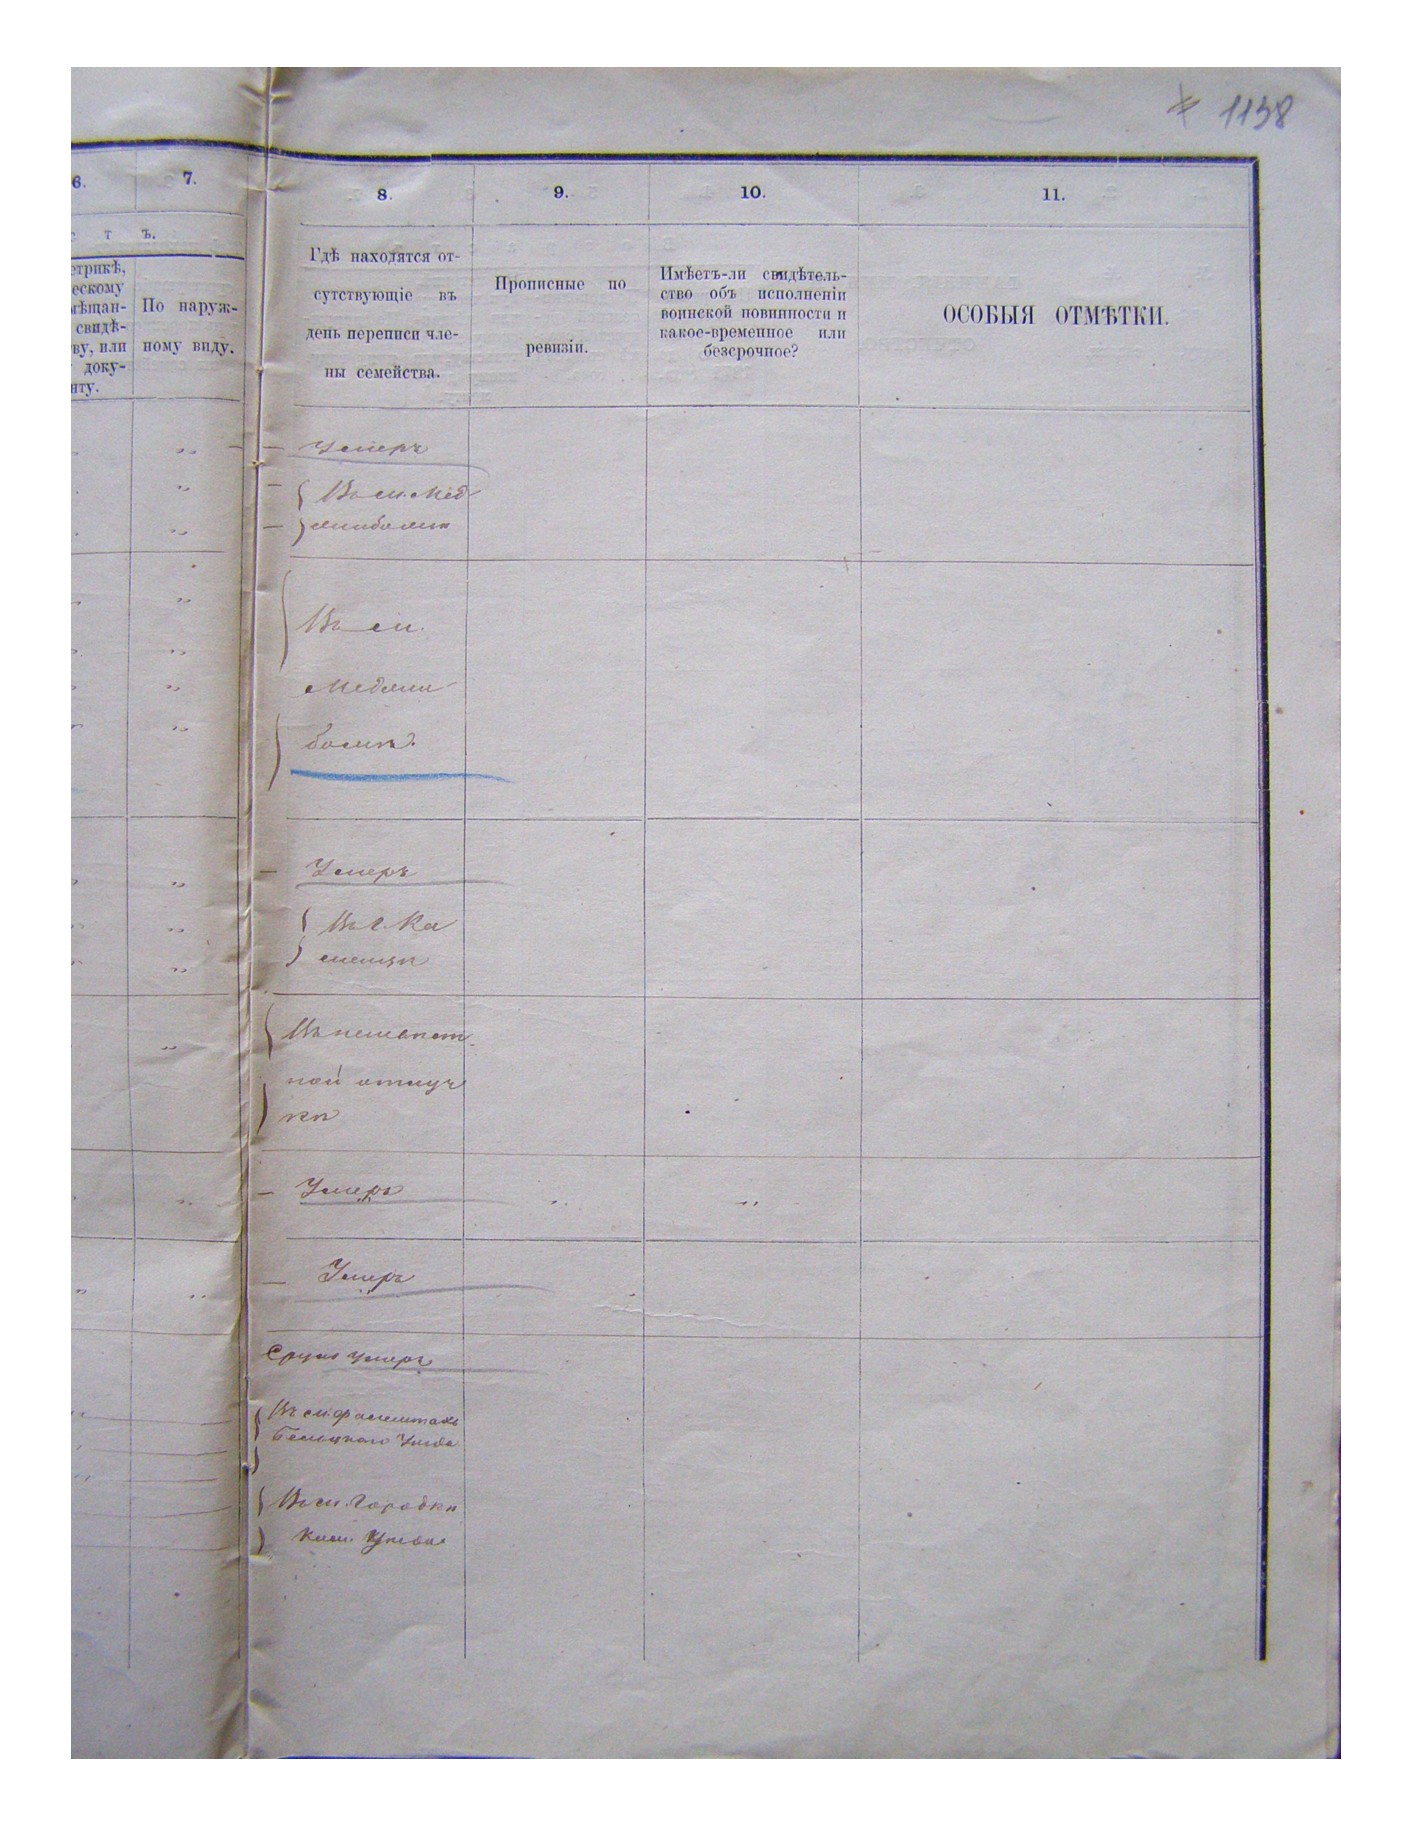 1138
6.
7.
8.
9.
10.
11.
с т ъ.
етрикѣ,
ескому
мѣщан-
свидѣ-
ву, или
доку-
нту.
По наруж-
ному виду.
Гдѣ находятся от-
сутствующіе въ
день переписи чле-
ны семейства.
Прописные по
ревизіи.
Имѣетъ-ли свидѣтель-
ство объ исполненіи
воинской повинности и
какое-временное или
безсрочное?
ОСОБЫЯ ОТМѢТКИ.
Умеръ
Въ м. Мед-
Въ м.
Меджи
божѣ.
Умеръ
Въ г. Ка
менцѣ
Въ
ной отлуч
кѣ
Умеръ
Умеръ
умеръ
Въ м.
Уѣзда
Въ м. Городкѣ
Кам. Уѣзда